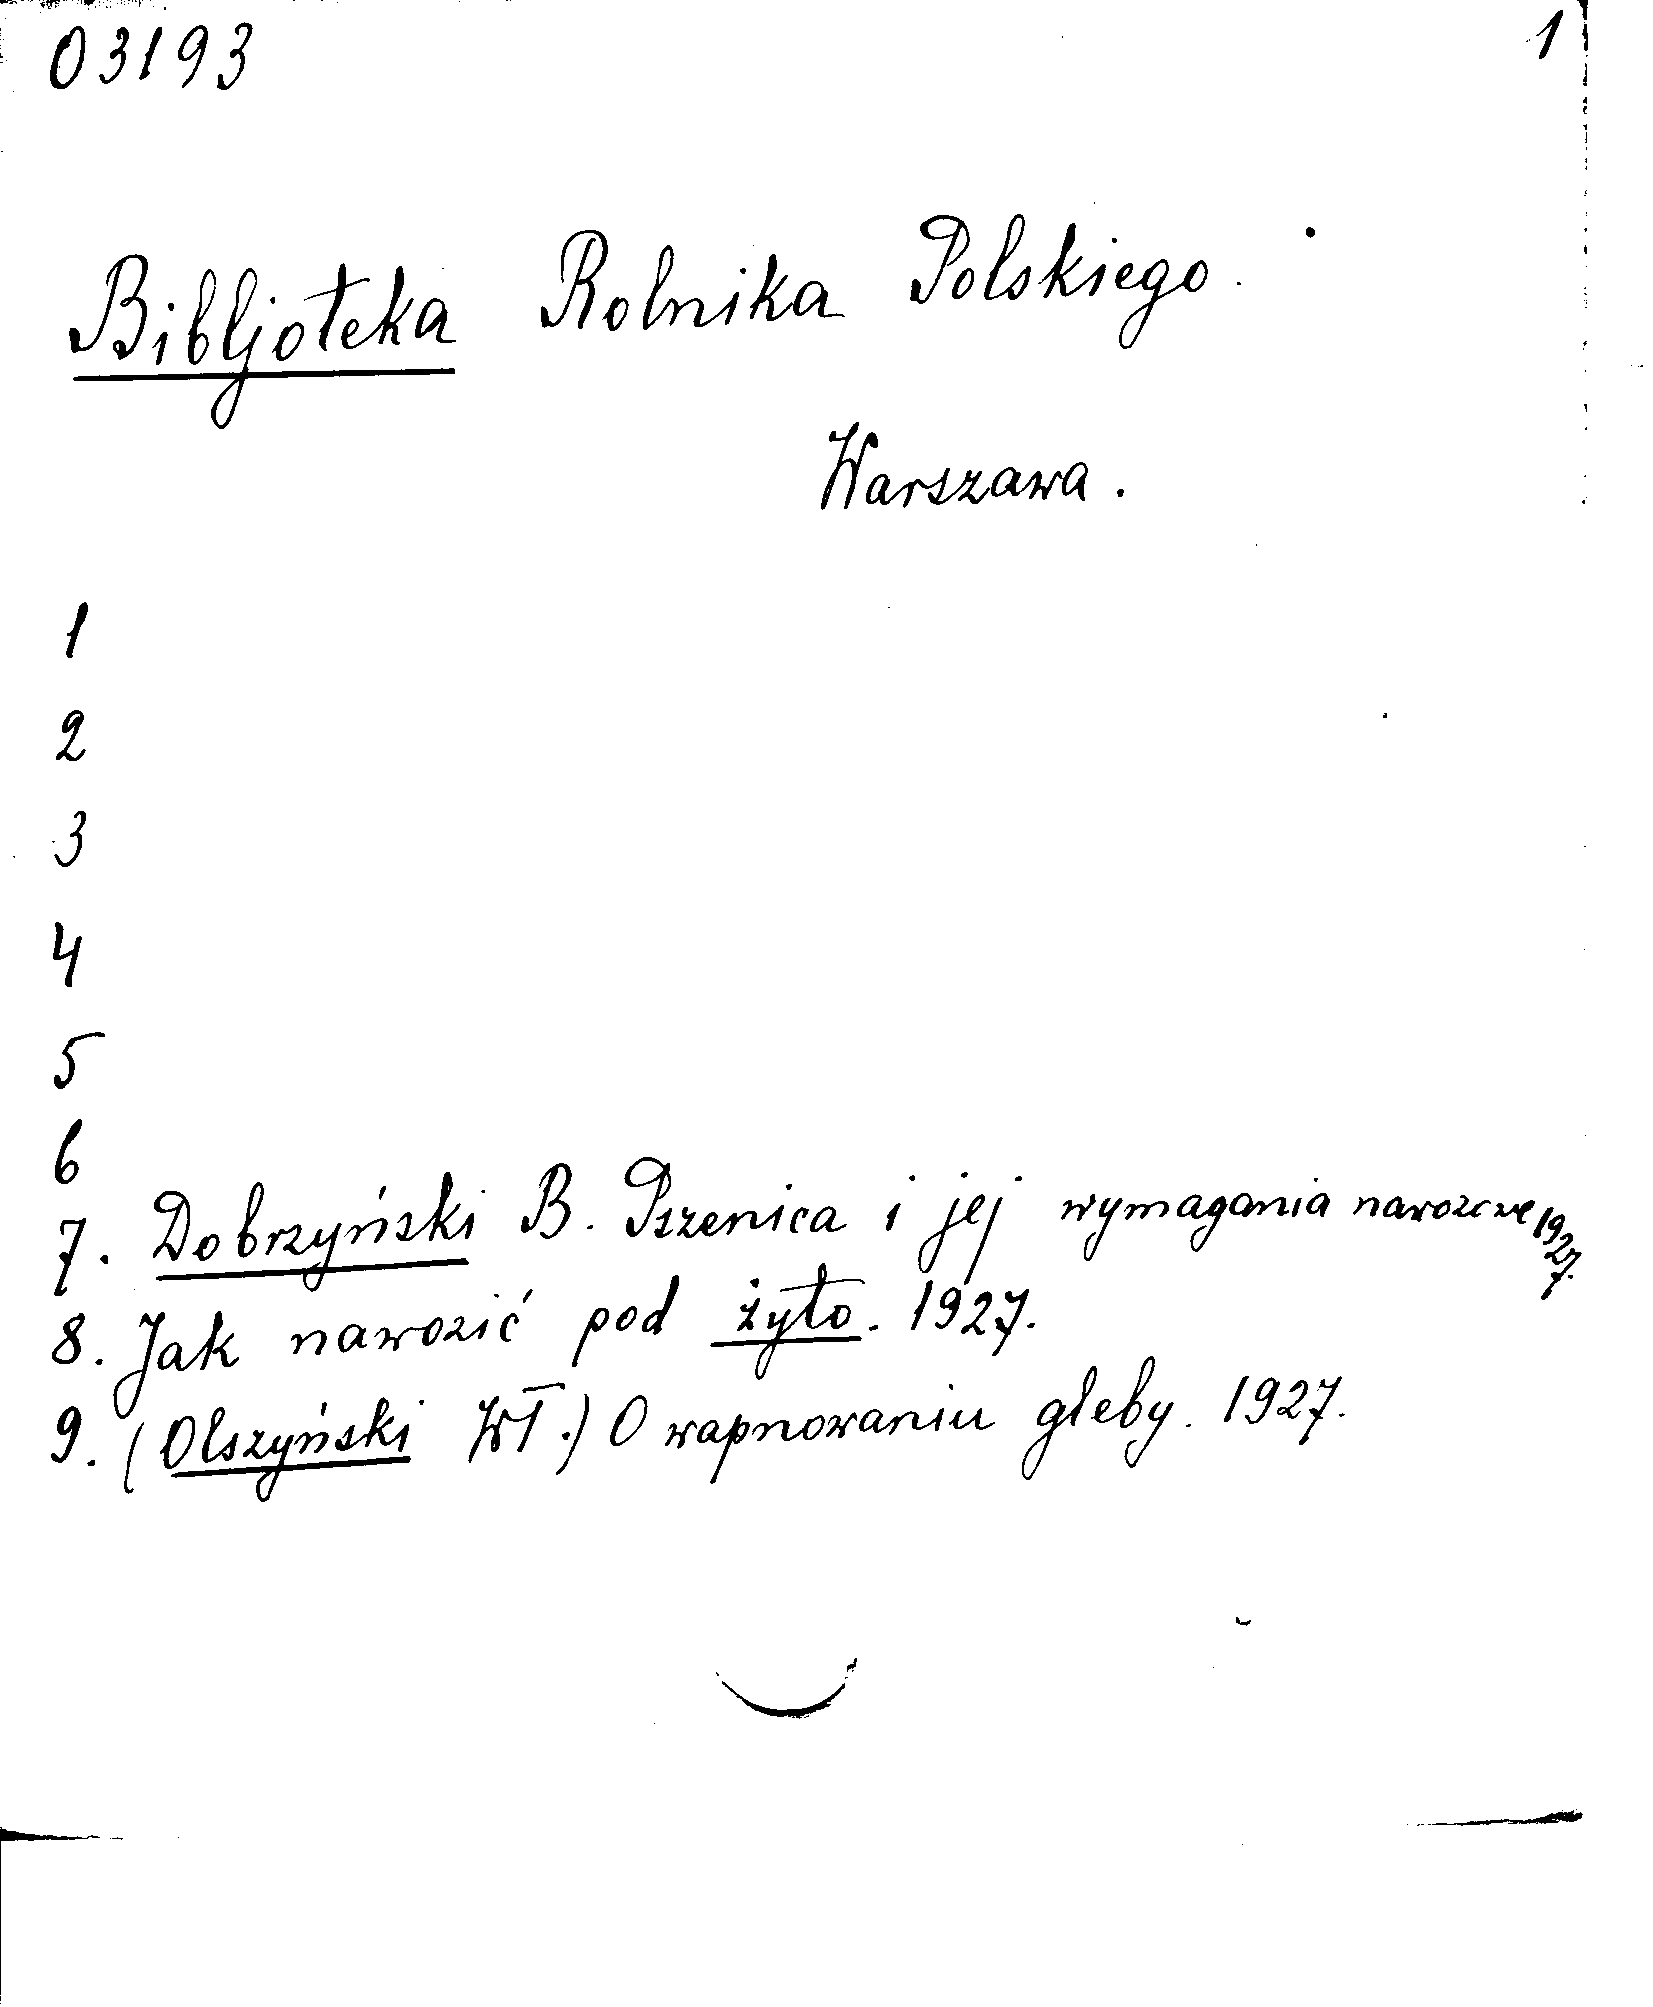 03193 1
Bibljoteka Rolnika Polskiego.
Warszawa.
1
2
3
4
5
6
7. Dobrzyński B. Pszenica i jej wymagania nawozowe 1927.
8. Jak nawozić pod żyto. 1927.
9. (Olszyński Wł.) O wapnowaniu gleby. 1927.